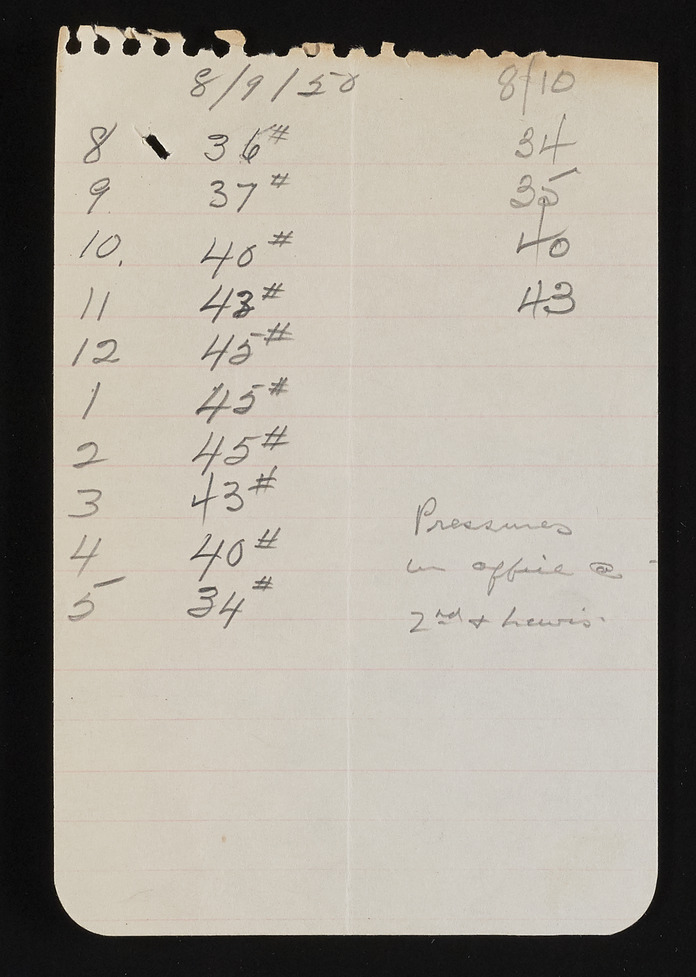 8/9/50 8/10
8 36# 34
9 37# 35
10. 40# 40
11 43# 43
12 45#
1 45#
2 45#
3 43#
4 40#
5 34#
Pressures
in office @
2nd & Lewis.